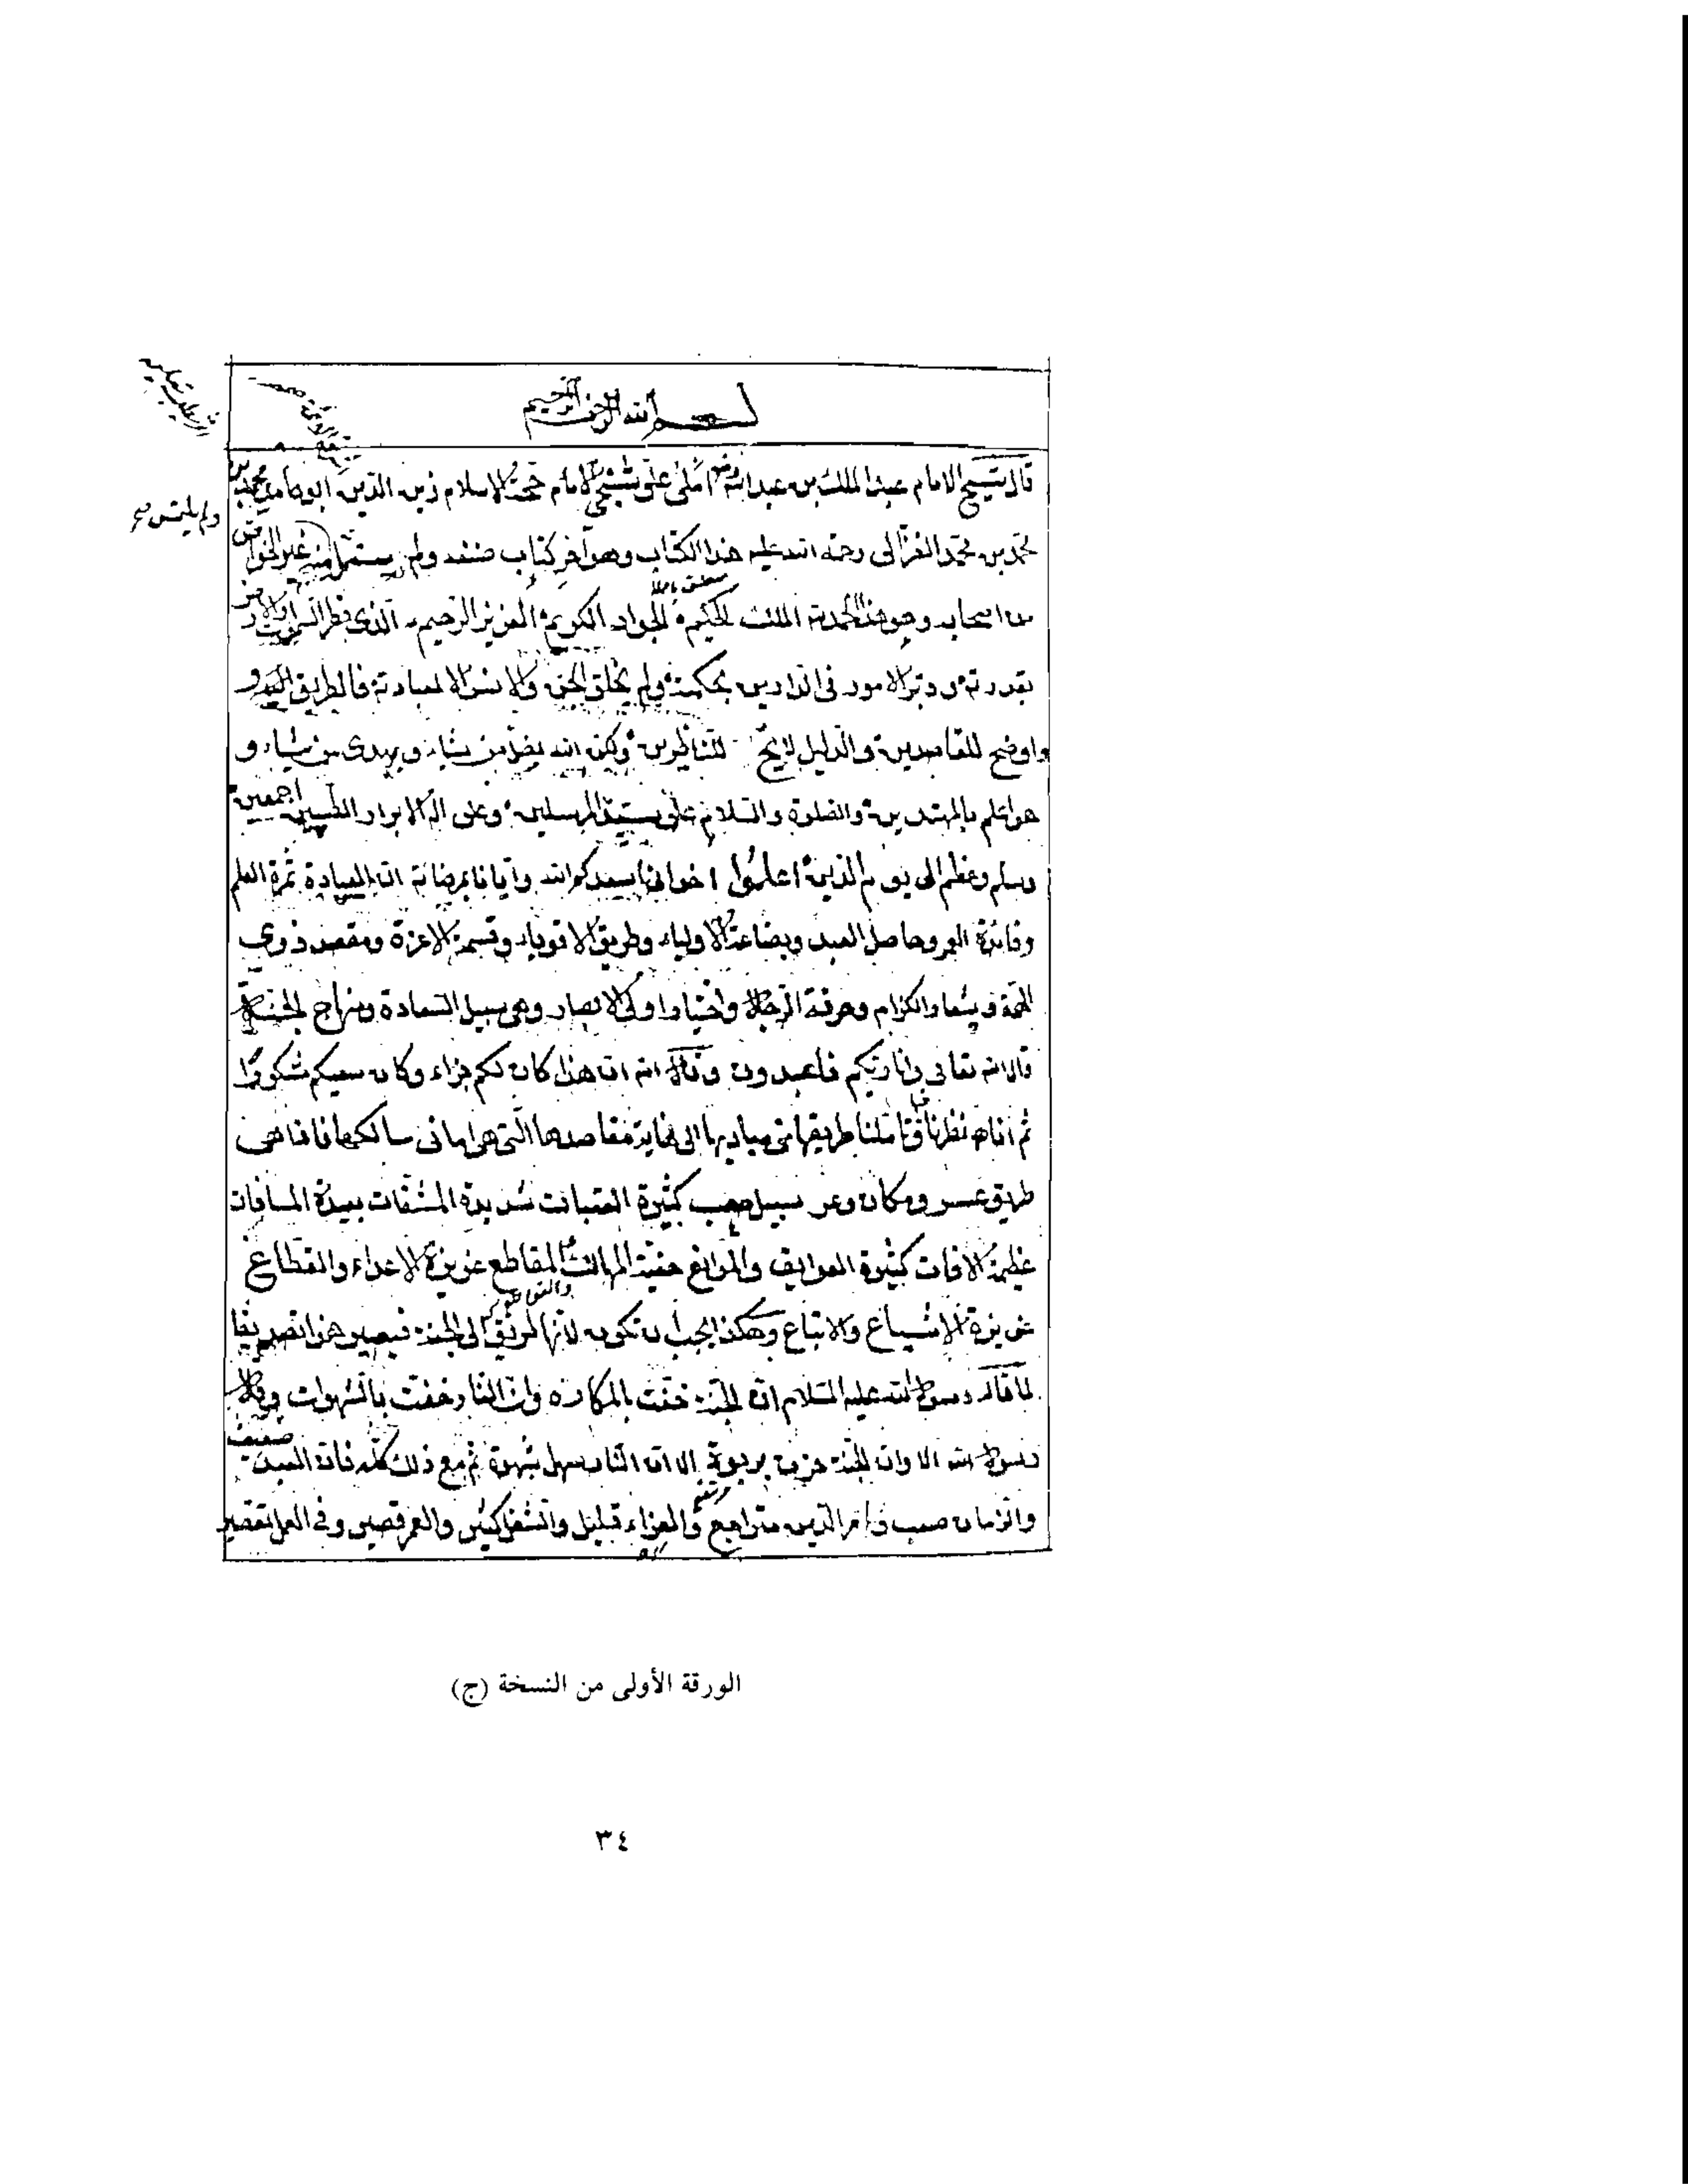 بسم الله الرحمن الرحيم
قال الشيخ الامام عبد الملك بن عبد الله املى على شيخى الامام حجة الاسلام زين الدين ابو حامد محمد بن
محمد بن محمد الغزالى رحمة الله عليه هذا الكتاب وهو آخر كتاب صنفه ولم يستمل منه غير الخواص
ولم يلتمس صح
من اصحابه وهو هذا الحمد لله الملك الحكيم الجواد الكريم العزيز الرحيم الذى فطر السموات والارض
بقدرته ودبر الامور فى الدارين بحكمته ولم يخلق الجن والانس الا لعبادته فالطريق اليه و
واوضح للقاصدين والدليل لايح للناظرين ولكن الله يضل من يشاء ويهدى من يشاء و
هو اعلم بالمهتدين والصلوة والسلام على سيد المرسلين وعلى اله الابرار الطيبين اجمعين
وسلم وعظم الى يوم الدين اعلموا اخوانى اسعدكم الله وايانا بمرضاته ان العبادة ثمرة العلم
وفائدة العمر وحاصل العبد وبضاعة الاولياء وطريق الاقوياء وقسمة الاعزة ومقصد ذوى
الهمة وشعار الكرام وحرفة الرجال واختيار اولى الابصار وهى سبيل السعادة ومنهاج الجنة
قال الله تعالى وانا ربكم فاعبدون وقال الله ان هذا كان لكم جزاء وكان سعيكم مشكورا
ثم انا نظرنا فيها وتاملنا طريقها من مباديها الى غاية مقاصدها التى هى امانى سالكها فاذا هى
طريق عسر ومكان وعر سبيل صعب كثيرة العقبات شديدة المشقات بعيدة المسافات
عظيمة الافات كثيرة العوايق والموانع خفية المهالك والمقاطع غزيرة الاعداء والقطاع
عزيزة الاشياع والاتباع وهكذا يجب ان تكون لانها طريق الى الجنة فيصير هذا تصديقا
لما قال رسول الله عليه السلام ان الجنة حفت بالمكاره وان النار حفت بالشهوات وقال
رسول الله الا وان الجنة حزن بربوة الا ان النار سهل بشهوة ثم مع ذلك كله فان العبد ضعيف
والزمان صعب وامر الدين متراجع والفراغ قليل والشغل كثير والعمر قصير وفى العمل تقصير
الورقة الأولى من النسخة (ج)
٣٤